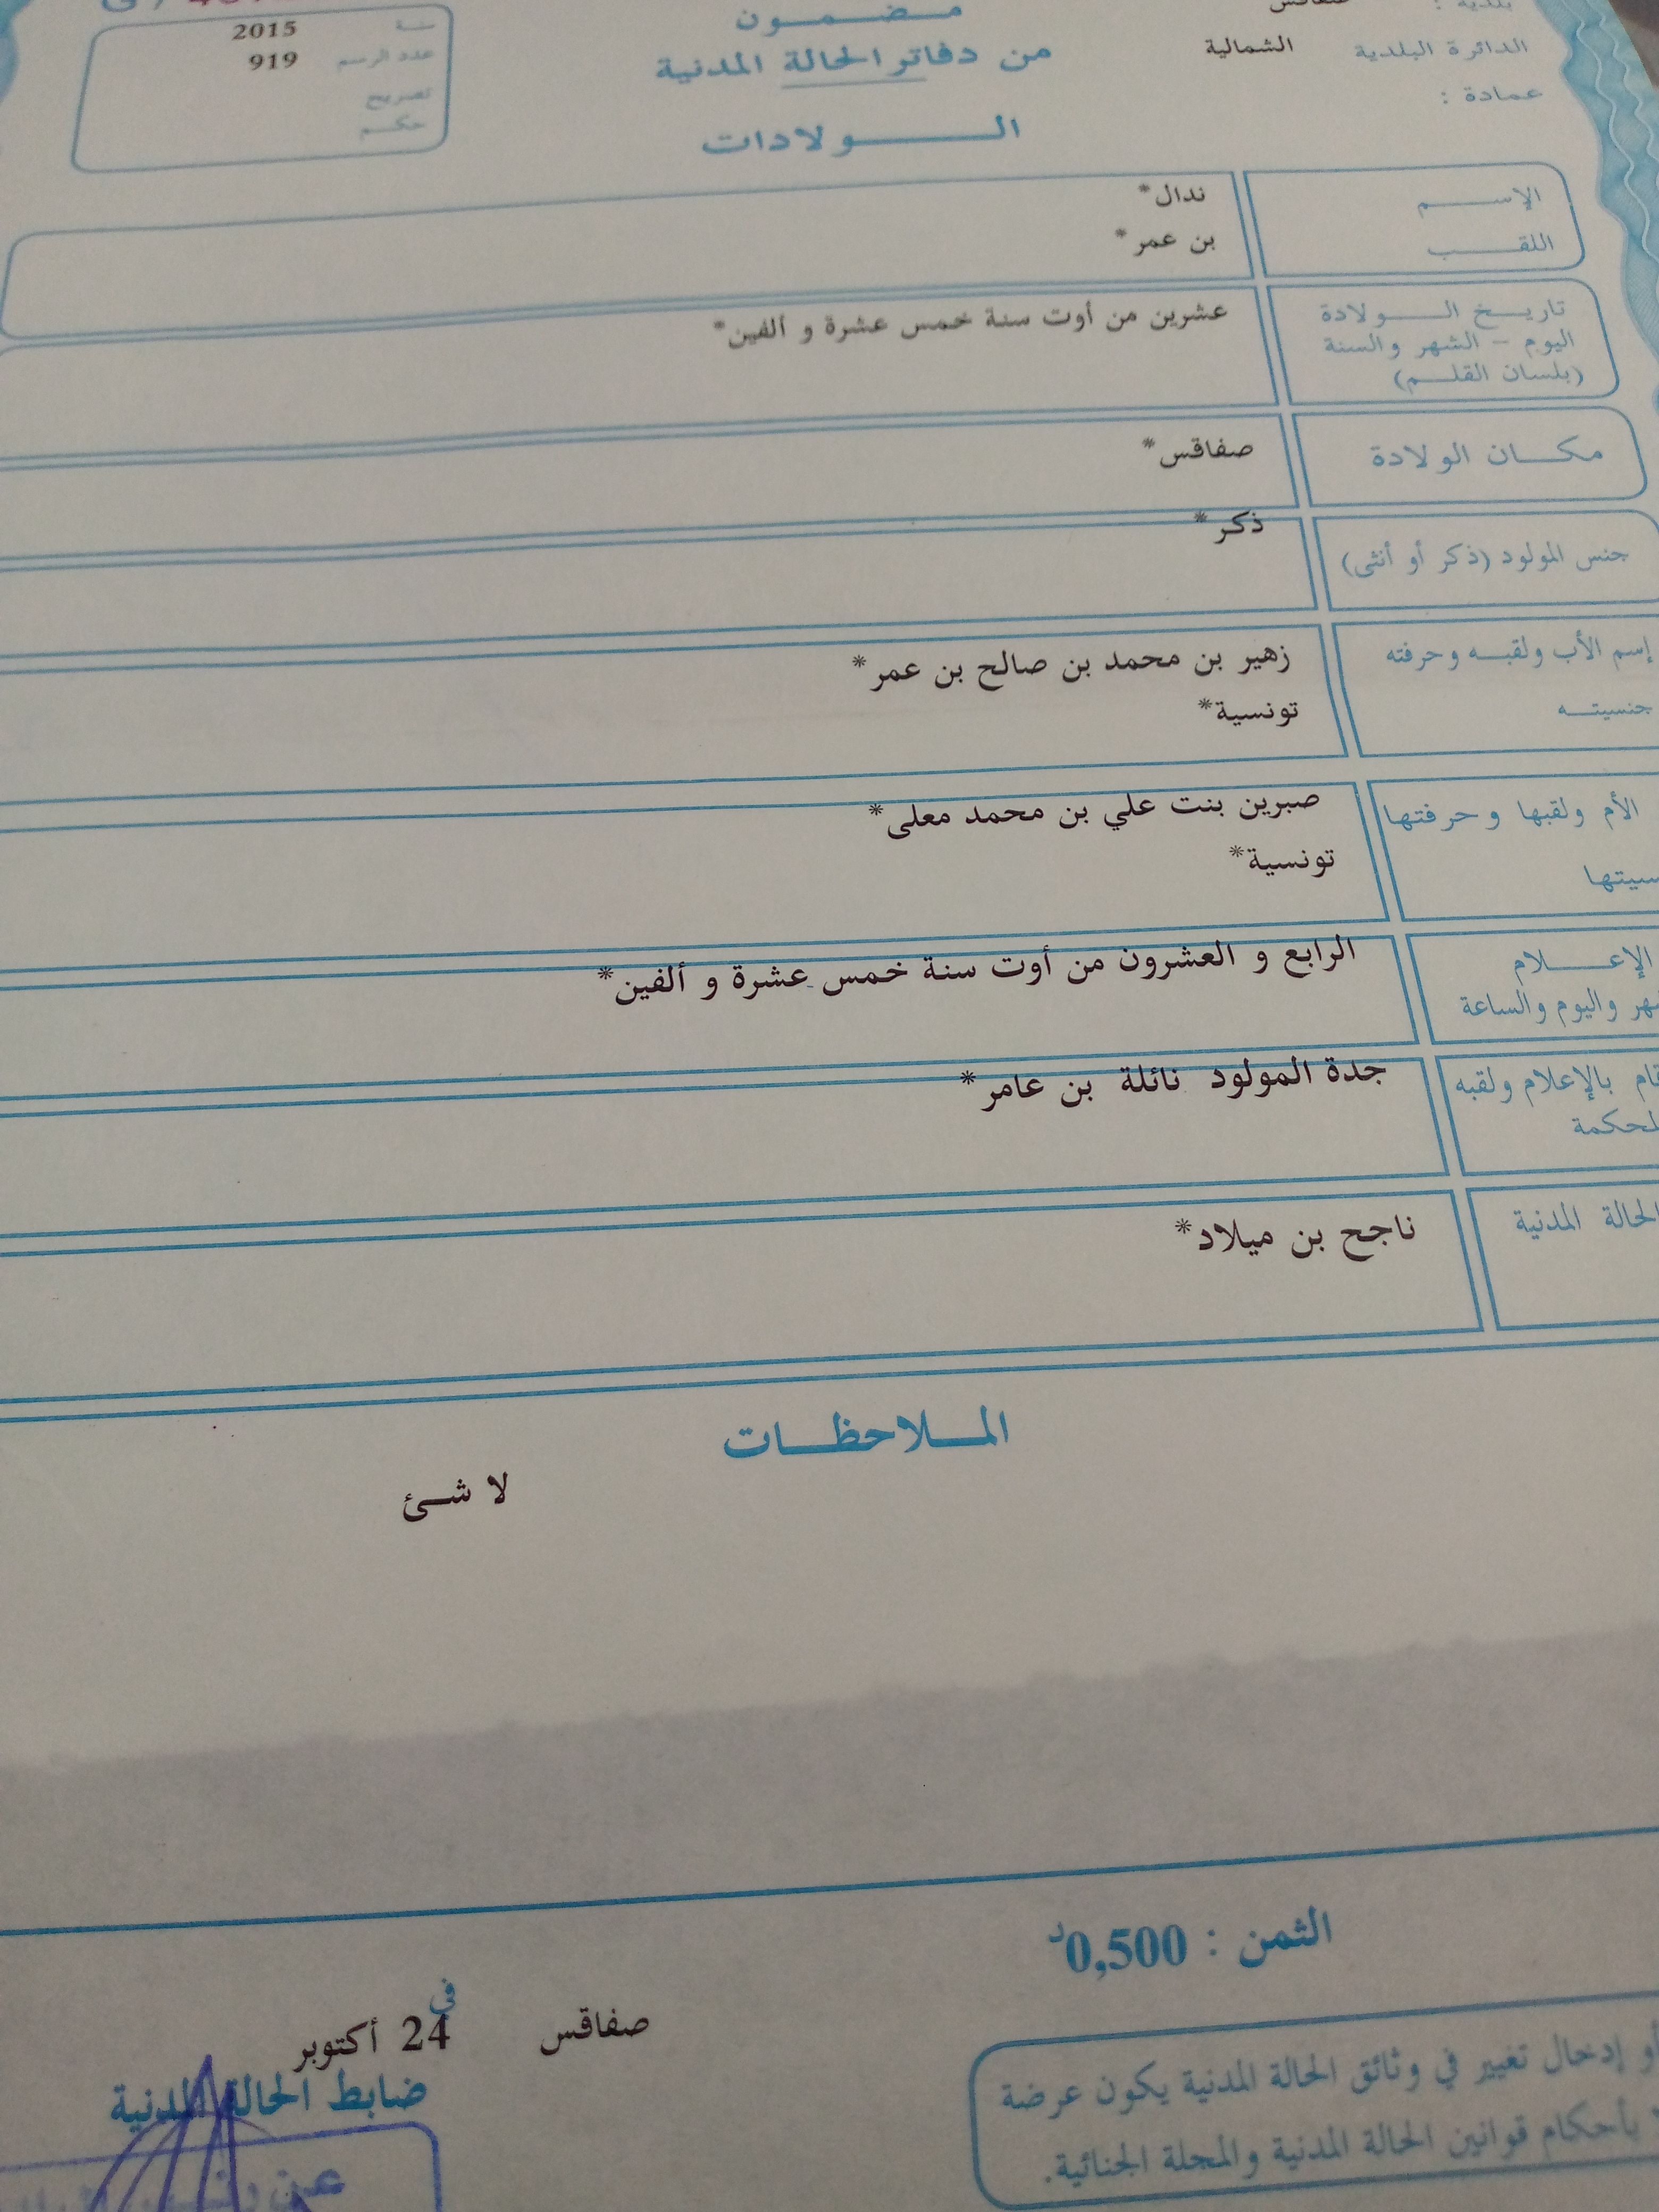 بلدية : صفاقس
مضمون
سنة 2015
الدائرة البلدية الشمالية
من دفاتر الحالة المدنية
عدد الرسم 919
عمادة :
تصريح
حكم
الولادات
الإسم ندال*
اللقب بن عمر*
تاريخ الولادة عشرين من أوت سنة خمس عشرة و ألفين*
اليوم - الشهر والسنة
(بلسان القلم)
مكان الولادة صفاقس*
جنس المولود (ذكر أو أنثى) ذكر*
إسم الأب ولقبه وحرفته زهير بن محمد بن صالح بن عمر*
جنسيته تونسية*
الأم ولقبها وحرفتها صبرين بنت علي بن محمد معلى*
سيتها تونسية*
الإعلام الرابع و العشرون من أوت سنة خمس عشرة و ألفين*
هر واليوم والساعة
قام بالإعلام ولقبه جدة المولود نائلة بن عامر*
لمحكمة
الحالة المدنية ناجح بن ميلاد*
الملاحظات
لا شئ
الثمن : 0,500د
صفاقس في 24 أكتوبر
ضابط الحالة المدنية
أو إدخال تغيير في وثائق الحالة المدنية يكون عرضة
بأحكام قوانين الحالة المدنية والمجلة الجنائية.
عن